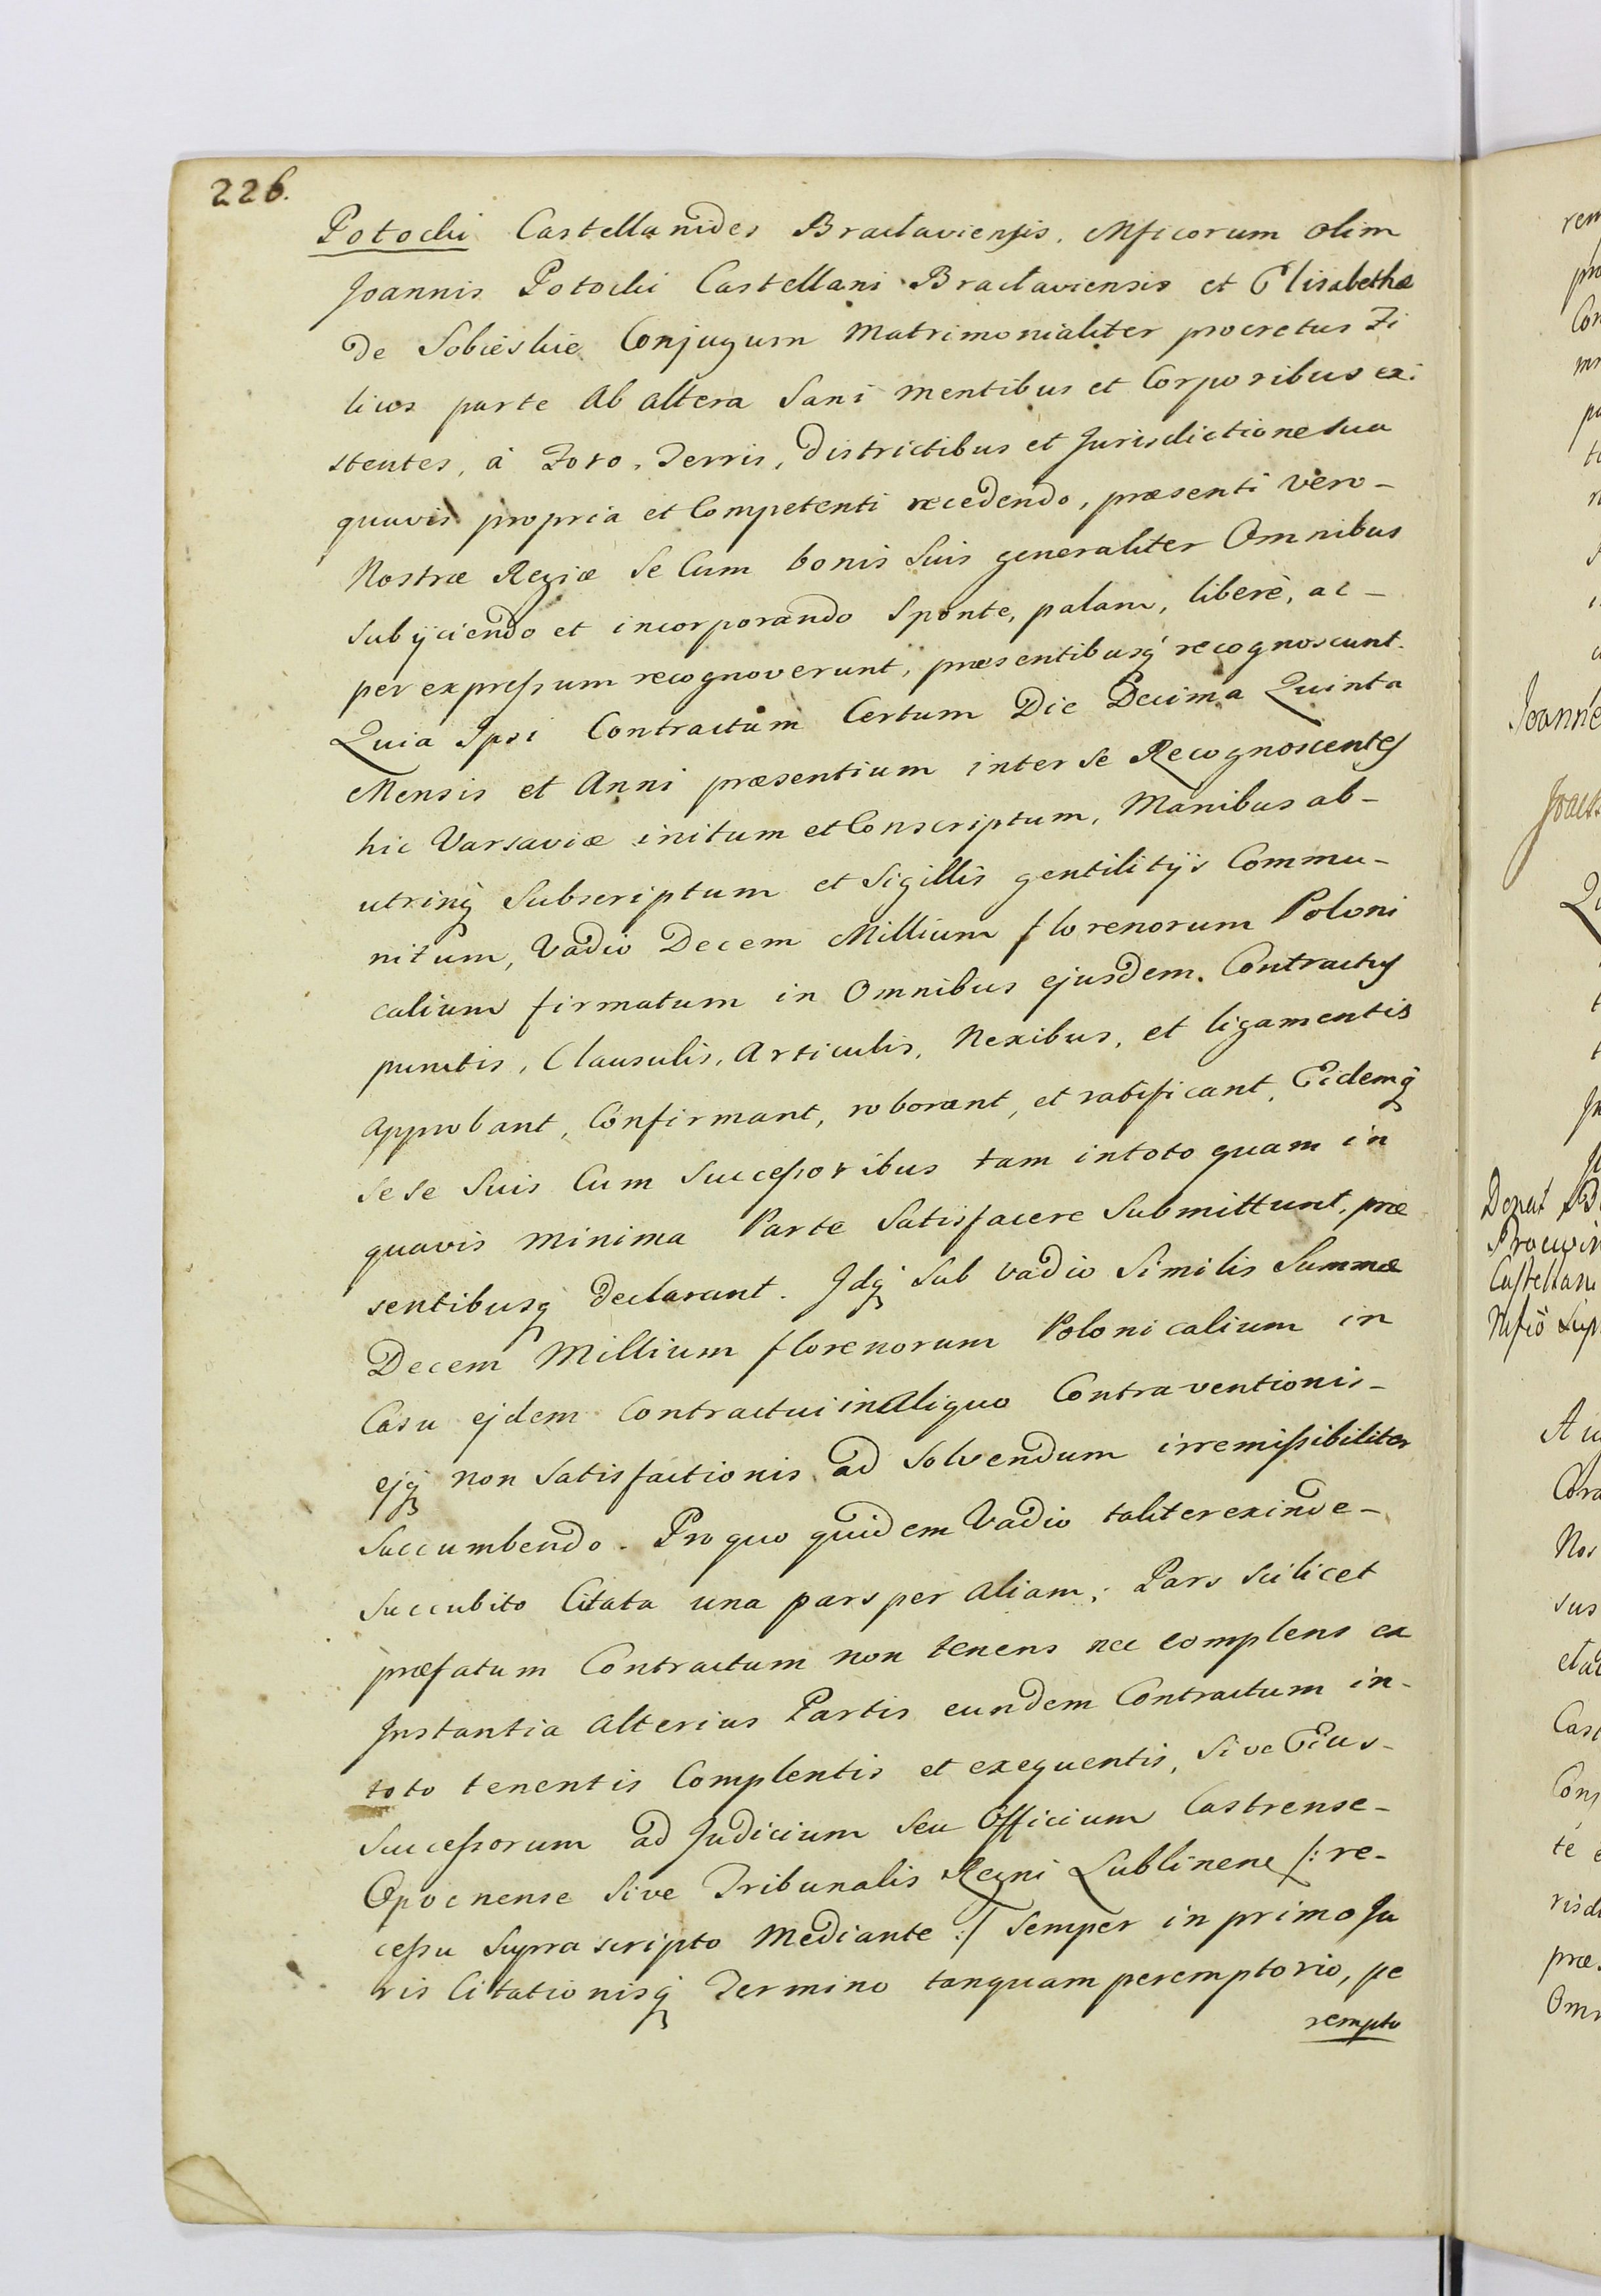 226.
Potocki Castellanides Braclaviensis. Mficorum olim
Joannis Potocki Castellani Braclaviensis et Elisabethæ
de Sobieskie Conjugum Matrimonialiter procretus Fi
lius parte ab altera Sani mentibus et Corporibus exi
stentes, à Foro, Terris, Districtibus et Jurisdictione sua
quavis propria et Competenti recedendo, præsenti vero-
Nostræ Regiæ se Cum bonis Suis generaliter Omnibus
subijciendo et incorporando Sponte, palam, liberè, ac-
per expressum recognoverunt, præsentibusq́ recognoscunt.
Quia Ipsi Contractum Certum Die Decima Quinta
Mensis et Anni præsentium inter se Recognoscentes
hic Varsaviæ initum et Conscriptum, Manibus ab-
utrinq́ Subscriptum et Sigillis gentilitijs Commu-
nitum, Vadio Decem Millium florenorum Poloni
calium firmatum in Omnibus ejusdem Contractus
punctis, Clausulis, Articulis, Nexibus, et ligamentis
approbant, Confirmant, roborant, et ratificant, Eidemq́
sese Suis Cum Successoribus tam intoto quam in
quavis minima Parte Satisfacere Submittunt, præ
sentibusq́ declarant. Idq́ Sub vadio Similis Summæ
Decem Millium florenorum Polonicalium in
Casu ejdem Contractui inaliquo Contraventionis-
ejq́ non Satisfactionis ad Solvendum irremissibiliter
Succumbendo. Pro quo quidem Vadio taliter exinde-
Succubito Citata una pars per aliam; Pars Scilicet
præfatum Contractum non tenens nec complens ex
Instantia alterius Partis eundem Contractum in-
toto tenentis Complentis et exequentis, Sive Eius-
Successorum ad Judicium Seu Officium Castrense-
Opocnense Sive Tribunalis Regni Lublinene /: re-
cessu Supra scripto Mediante :/ Semper in primo Ju
ris Citationisq́ Termino tanquam peremptorio, pe
rempto